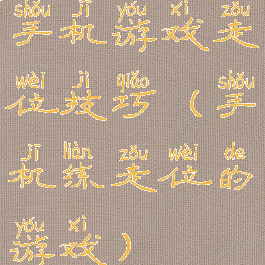 shǒu jī yóu xì zǒu
手机游戏走
wèi jì qiǎo shǒu
位技巧（手
jī liàn zǒu wèi de
机练走位的
yóu xì
游戏）